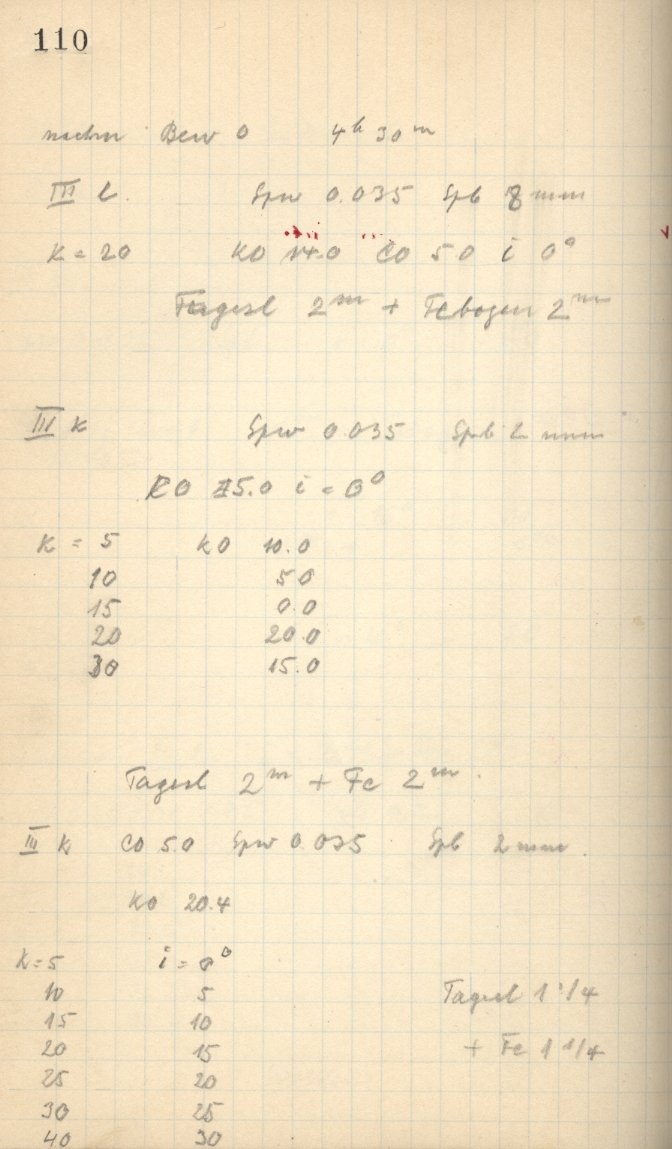 110
nachm Bew 0 4h 30m
III l. Spw 0.035 Spb 8 mm
K = 20 KO 14.0 CO 5.0 i 0°
Tagesl 2m + Febogen 2m
III K Spw 0.035 Spb 2 mm
CO 5.0 i = 0°
K = 5 KO 10.0
10 5.0
15 0.0
20 20.0
30 15.0
Tagesl 2m + Fe 2m.
III K CO 5.0 Spw 0.035 Spb 2 mm.
KO 20.4
K=5 i = 0°
10 5 Tagesl 1 1/4
15 10
20 15 + Fe 1 1/4
25 20
30 25
40 30